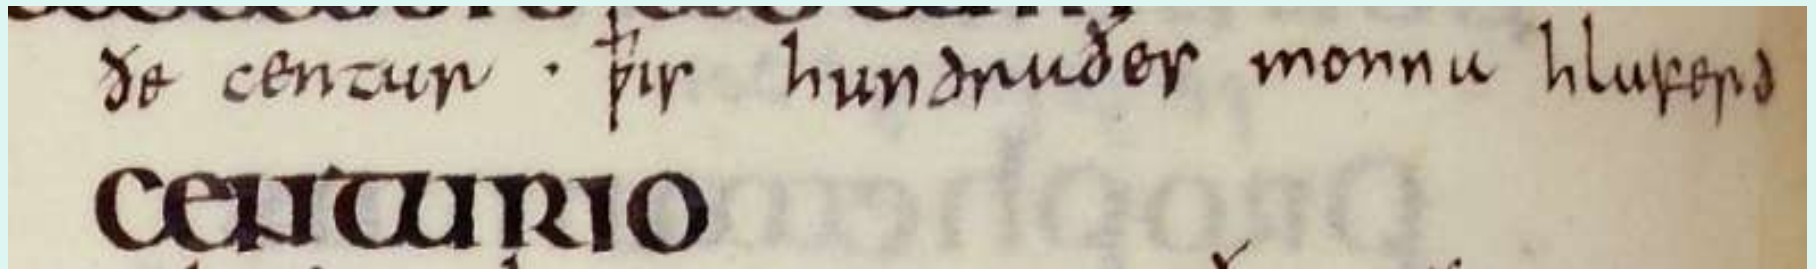 ðe centur · ꝥ is hundraðes monna hlaferd
centurio